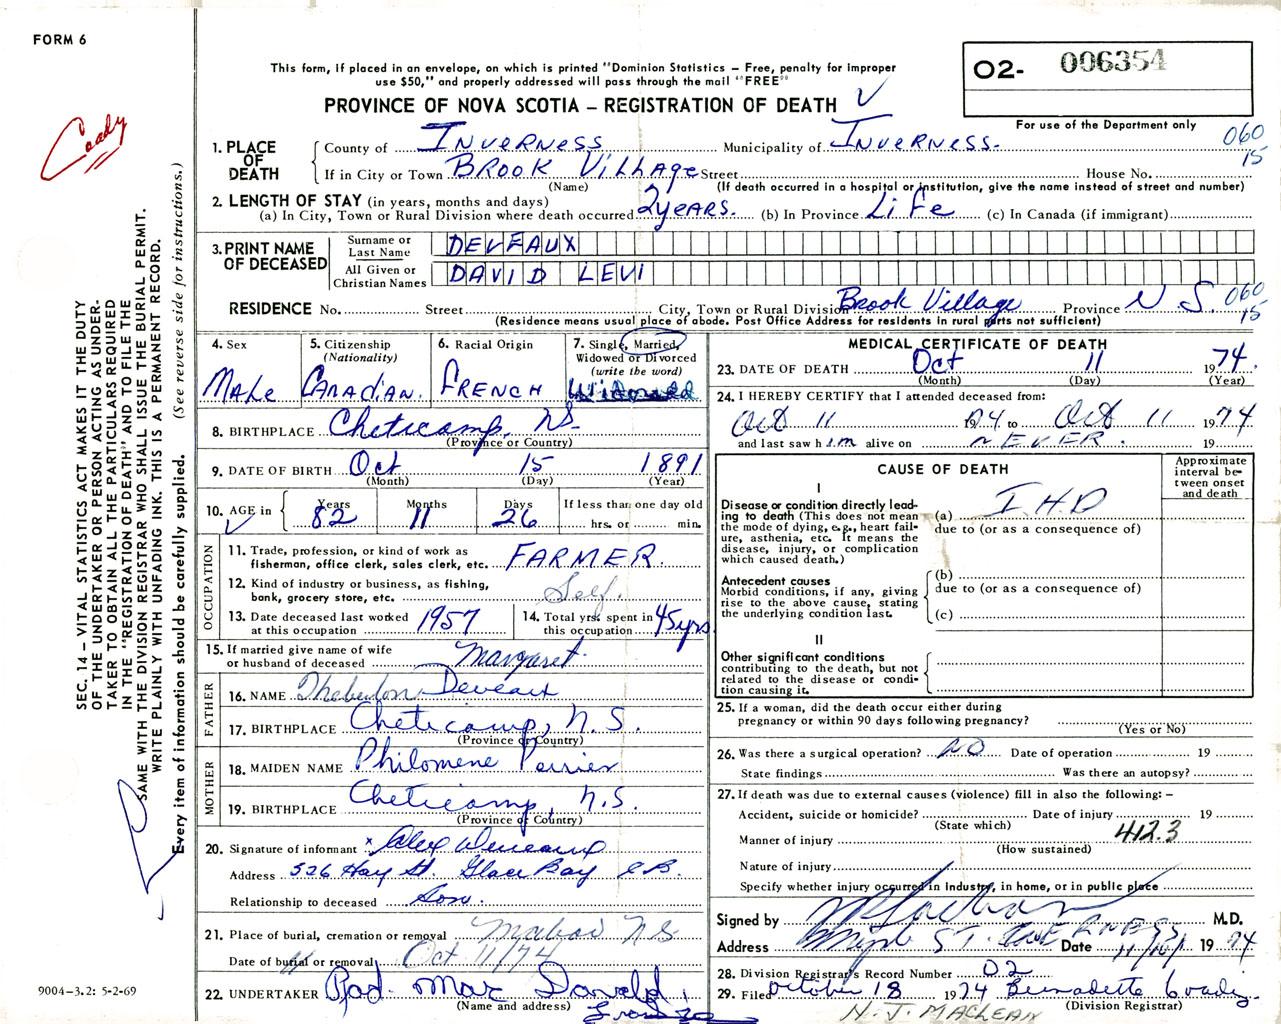 FORM 6
This form, if placed in an envelope, on which is printed "Dominion Statistics – Free, penalty for improper
use $50," and properly addressed will pass through the mail "FREE"
O2- 006354
PROVINCE OF NOVA SCOTIA – REGISTRATION OF DEATH
For use of the Department only
Coady
1. PLACE OF DEATH
County of INVERNESS Municipality of INVERNESS. 060
If in City or Town BROOK VILLAGE Street House No. 15
(Name) (If death occurred in a hospital or institution, give the name instead of street and number)
2. LENGTH OF STAY (in years, months and days)
(a) In City, Town or Rural Division where death occurred 2 YEARS. (b) In Province LIFE (c) In Canada (if immigrant)
3. PRINT NAME OF DECEASED
Surname or Last Name DEVEAUX
All Given or Christian Names DAVID LEVI
RESIDENCE No. Street City, Town or Rural Division Brook Village Province N.S. 060 15
(Residence means usual place of abode. Post Office Address for residents in rural parts not sufficient)
4. Sex
MALE
5. Citizenship
(Nationality)
CANADIAN.
6. Racial Origin
FRENCH
7. Single, Married,
Widowed or Divorced
(write the word)
Widowed
8. BIRTHPLACE Cheticamp, NS.
(Province or Country)
9. DATE OF BIRTH Oct 15 1891
(Month) (Day) (Year)
10. AGE in Years 82 Months 11 Days 26
If less than one day old
hrs. or min.
OCCUPATION
11. Trade, profession, or kind of work as
fisherman, office clerk, sales clerk, etc. FARMER.
12. Kind of industry or business, as fishing,
bank, grocery store, etc. Self.
13. Date deceased last worked
at this occupation 1957
14. Total yrs. spent in
this occupation 45 yrs
15. If married give name of wife
or husband of deceased Margaret.
FATHER
16. NAME Deveaux
17. BIRTHPLACE Cheticamp, N.S.
(Province or Country)
MOTHER
18. MAIDEN NAME Philomene Poirier
19. BIRTHPLACE Cheticamp, N.S.
(Province or Country)
20. Signature of informant x Alex Deveaux
Address 526 Hay St. Glace Bay C.B.
Relationship to deceased Son.
21. Place of burial, cremation or removal Mabou N.S.
Date of burial or removal Oct 11/74
22. UNDERTAKER Rod. MacDonald,
(Name and address)
MEDICAL CERTIFICATE OF DEATH
23. DATE OF DEATH Oct 11 1974.
(Month) (Day) (Year)
24. I HEREBY CERTIFY that I attended deceased from:
Oct 11 1974 to Oct 11 1974
and last saw him alive on NEVER. 19
CAUSE OF DEATH
Approximate interval between onset and death
I
Disease or condition directly leading
to death (This does not mean
the mode of dying, e.g., heart failure,
asthenia, etc. It means the
disease, injury, or complication
which caused death.)
(a) I.H.D
due to (or as a consequence of)
Antecedent causes
Morbid conditions, if any, giving
rise to the above cause, stating
the underlying condition last.
(b)
due to (or as a consequence of)
(c)
II
Other significant conditions
contributing to the death, but not
related to the disease or condition
causing it.
25. If a woman, did the death occur either during
pregnancy or within 90 days following pregnancy?
(Yes or No)
26. Was there a surgical operation? NO Date of operation 19
State findings Was there an autopsy?
27. If death was due to external causes (violence) fill in also the following: –
Accident, suicide or homicide? Date of injury 19
(State which)
Manner of injury 412.3
(How sustained)
Nature of injury
Specify whether injury occurred in industry, in home, or in public place
Signed by M.D.
Address ST. INVERNESS Date 11/10/ 1974
28. Division Registrar's Record Number 02
29. Filed October 18 1974 Bernadette Coady.
(Division Registrar)
N. J. MACLEAN
SEC. 14 – VITAL STATISTICS ACT MAKES IT THE DUTY
OF THE UNDERTAKER OR PERSON ACTING AS UNDER-
TAKER TO OBTAIN ALL THE PARTICULARS REQUIRED
IN THE "REGISTRATION OF DEATH" AND TO FILE THE
SAME WITH THE DIVISION REGISTRAR WHO SHALL ISSUE THE BURIAL PERMIT.
WRITE PLAINLY WITH UNFADING INK. THIS IS A PERMANENT RECORD.
Every item of information should be carefully supplied. (See reverse side for instructions.)
9004-3.2: 5-2-69